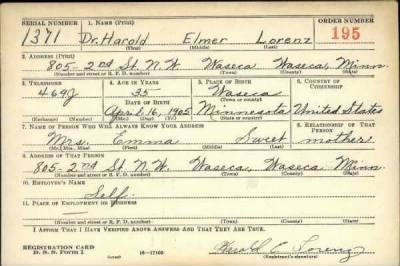 SERIAL NUMBER 1. NAME (Print) ORDER NUMBER
1371 Dr. Harold Elmer Lorenz 195
(First) (Middle) (Last)
2. ADDRESS (Print)
805-2nd St. N.W. Waseca Waseca, Minn.
(Number and street or R. F. D. number) (Town) (County) (State)
3. TELEPHONE 4. AGE IN YEARS 5. PLACE OF BIRTH 6. COUNTRY OF CITIZENSHIP
469J 35 Waseca
DATE OF BIRTH (Town or county)
April 16, 1905 Minnesota United States
(Exchange) (Number) (Mo.) (Day) (Yr.) (State or country)
7. NAME OF PERSON WHO WILL ALWAYS KNOW YOUR ADDRESS 8. RELATIONSHIP OF THAT PERSON
Mrs. Emma Sweet mother
(Mr., Mrs., Miss) (First) (Middle) (Last)
9. ADDRESS OF THAT PERSON
805-2nd St. N.W. Waseca, Waseca Minn.
(Number and street or R. F. D. number) (Town) (County) (State)
10. EMPLOYER'S NAME
Self.
11. PLACE OF EMPLOYMENT OR BUSINESS
(Number and street or R. F. D. number) (Town) (County) (State)
I AFFIRM THAT I HAVE VERIFIED ABOVE ANSWERS AND THAT THEY ARE TRUE.
REGISTRATION CARD
D. S. S. Form 1 16-17105 Harold E. Lorenz
(Registrant's signature)